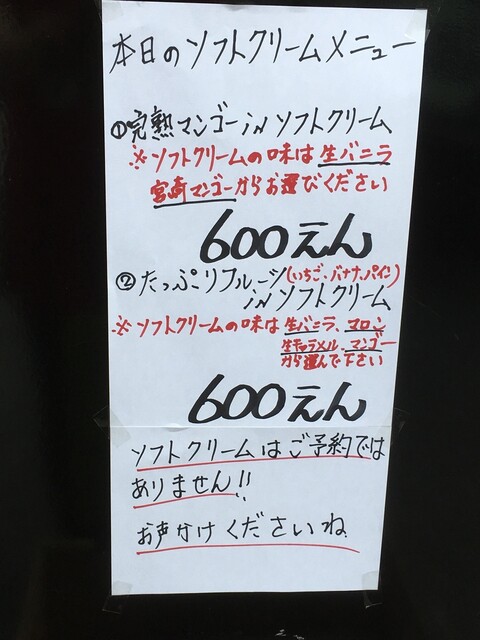 本日のソフトクリームメニュー
①完熟マンゴーinソフトクリーム
※ソフトクリームの味は生バニラ
宮崎マンゴーからお選びください
600えん
②たっぷりフルーツ(いちご、バナナ、パイン)
inソフトクリーム
※ソフトクリームの味は生バニラ、マロン
生キャラメル、マンゴー
から選んで下さい
600えん
ソフトクリームはご予約では
ありません!!
お声かけくださいね